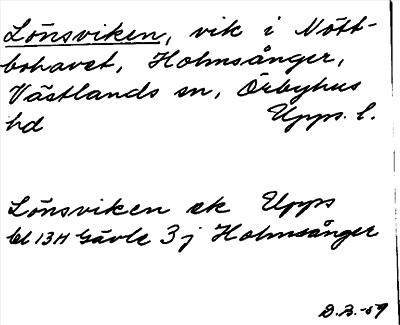 Lönsviken, vik i Nött-
bohavet, Holmsånger,
Västlands sn, Örbyhus
hd Upps. l.
Lönsviken ek Upps
bl 13H Gävle 3j Holmsånger
D.Z.-59